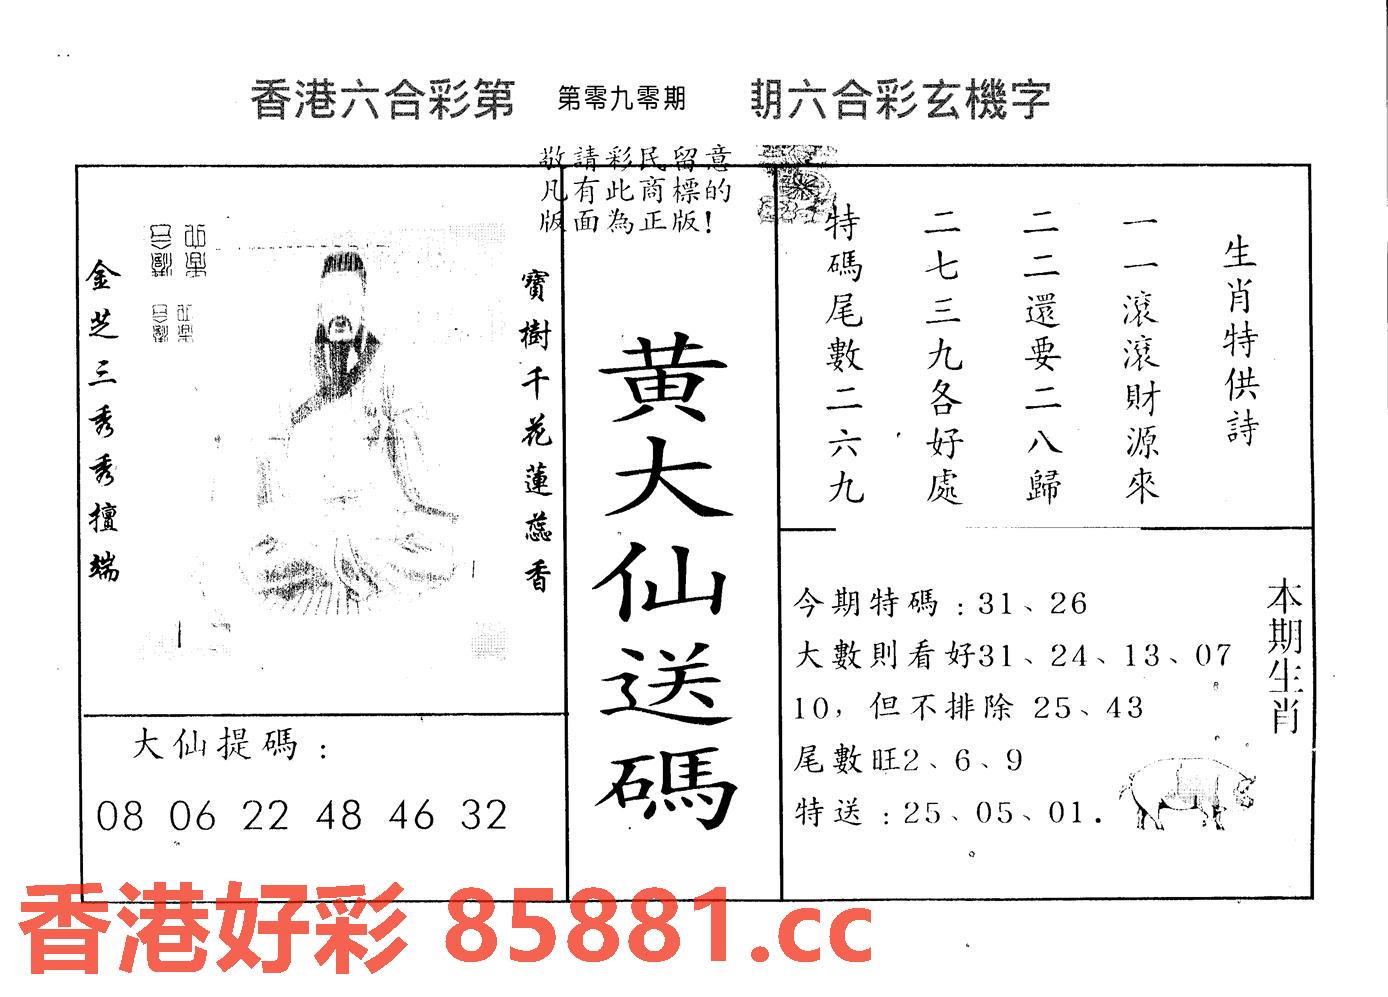 香港六合彩第 第零九零期 期六合彩玄機字
敬請彩民留意
凡有此商標的
版面為正版!
寶樹千花蓮蕊香
金芝三秀秀擅端
大仙提碼:
08 06 22 48 46 32
黄大仙送碼
生肖特供詩
一一滾滾財源來
二二還要二八歸
二七三九各好處
特碼尾數二六九
本期生肖
今期特碼:31、26
大數則看好31、24、13、07
10,但不排除 25、43
尾數旺2、6、9
特送:25、05、01.
香港好彩 85881.cc